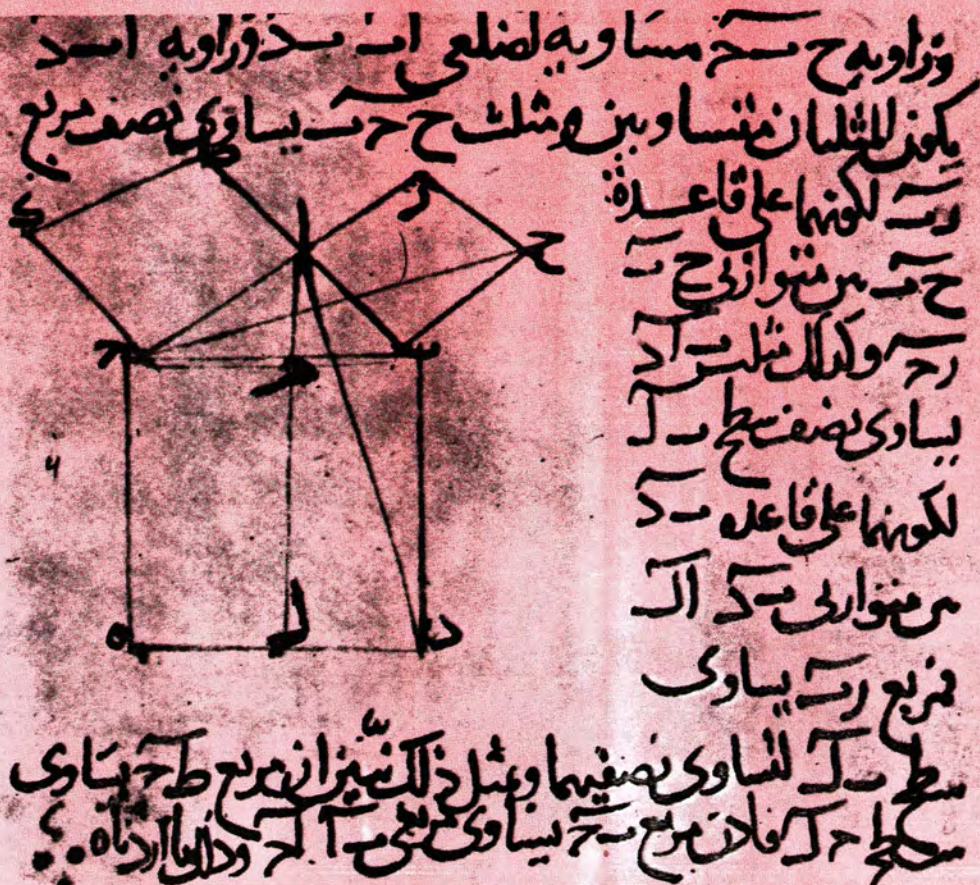 وزاويه ح ب ج مساويه لضلعى ا ب ب د وزاويه ا ب د
يكون المثلثان متساويين ومثلث ح ج ب يساوى نصف مربع
ر ب لكونهما على قاعدة
ح ب بين متوازيى ح ب
ر ج وكذلك مثلث ب ا د
يساوى نصف سطح ب ل
لكونهما على قاعده ب د
بين متوازيى ب د ا ل
فمربع ر ب يساوى
سطح ب ل لتساوى نصفيهما وبمثل ذلك نبين ان مربع ط ج يساوى
سطح ج ل فاذن مربع ب ج يساوى مربعى ب ا ا ج وذلك ما اردناه
ك
ط
ا
ر
ح
ج
ب
د
ل
ه